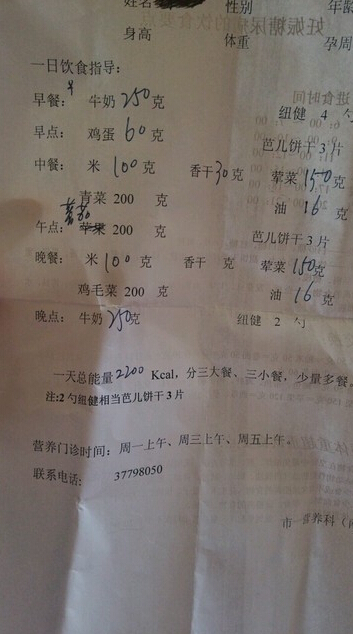 姓名 性别 年龄
身高 体重 孕周
一日饮食指导：
早餐： 牛奶 250 克 纽健 4 勺
早点： 鸡蛋 60 克 芭儿饼干 3 片
中餐： 米 100 克 香干 30 克 荤菜 150 克
青菜 200 克 油 16 克
午点： 蕃茄 苹果 200 克 芭儿饼干 3 片
晚餐： 米 100 克 香干 克 荤菜 150 克
鸡毛菜 200 克 油 16 克
晚点： 牛奶 250 克 纽健 2 勺
一天总能量 2200 Kcal，分三大餐、三小餐，少量多餐。
注:2 勺纽健相当芭儿饼干 3 片
营养门诊时间：周一上午、周三上午、周五上午。
联系电话： 37798050
市一营养科（